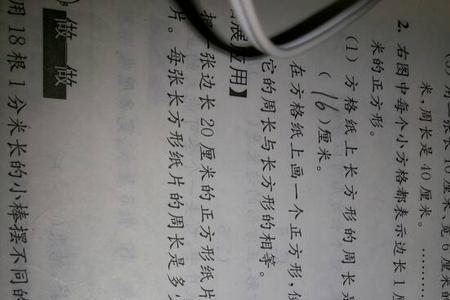 米，周长是10厘米。………
2. 右图中每个小方格都表示边长1厘
米的正方形。
(1) 方格纸上长方形的周长是
(16)厘米。
在方格纸上画一个正方形，使
它的周长与长方形的相等。
用】
一张边长20厘米的正方形纸片
片。每张长方形纸片的周长是多少
做一做
用18根1分米长的小棒摆不同的